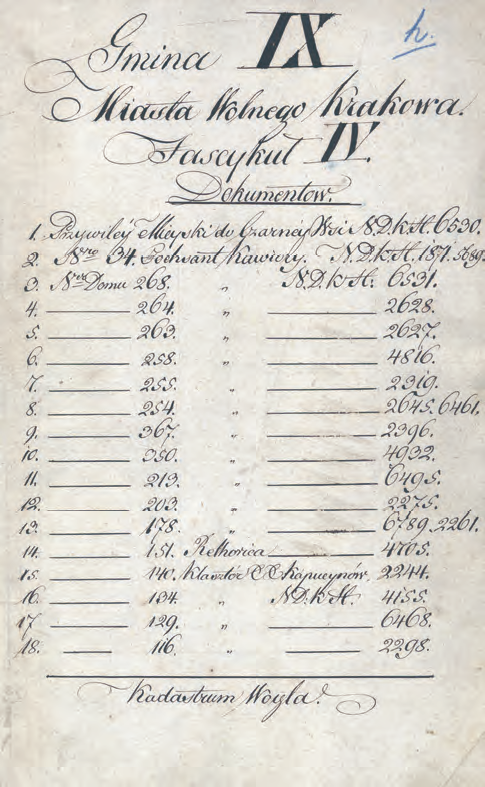 h.
Gmina IX
Miasta Wolnego Krakowa.
Fascykuł IV.
Dokumentow.
1. Przywiley Mieyski do Czarney Wsi N.D.k.H. 6530.
2. Nro 34. Kawiory. N.D.k.H. 1871. 5689.
3. Ner Domu 268. „ N.D.k.H. 6531.
4. ——— 264. „ ——— 2628.
5. ——— 263. „ ——— 2627.
6. ——— 258. „ ——— 4816.
7. ——— 255. „ ——— 2319.
8. ——— 254. „ ——— 2645. 6461.
9. ——— 367. „ ——— 2396.
10. ——— 350. „ ——— 4932.
11. ——— 213. „ ——— 6495.
12. ——— 203. „ ——— 2275.
13. ——— 178. „ ——— 6789. 2261.
14. ——— 151. Retkorica ——— 4705.
15. ——— 140. Klasztór XX Kapucynów. 2244.
16. ——— 134. „ N.D.k.H. 4155.
17. ——— 129. „ ——— 6468.
18. ——— 116. „ ——— 2298.
Kadastrum Wogla.